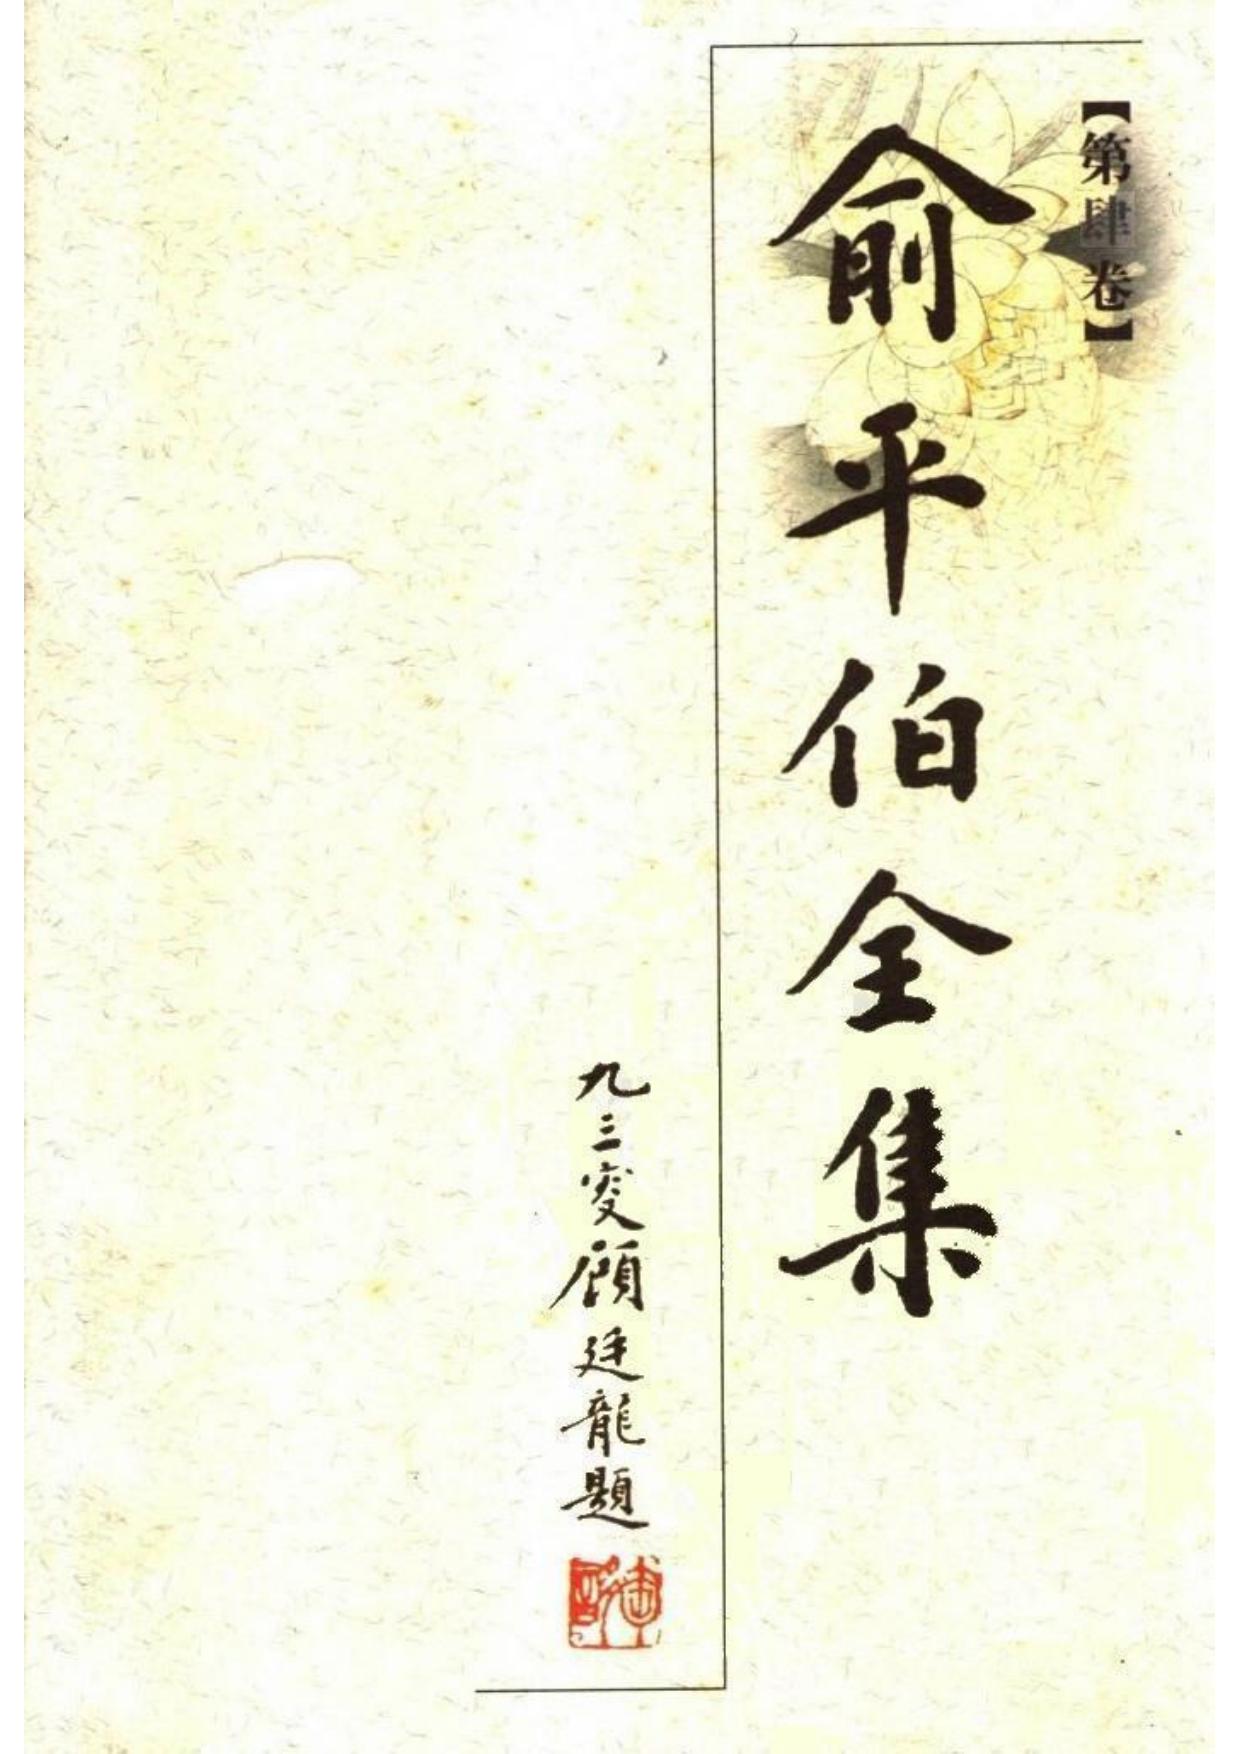 【第肆卷】
俞平伯全集
九三叟顧廷龍題